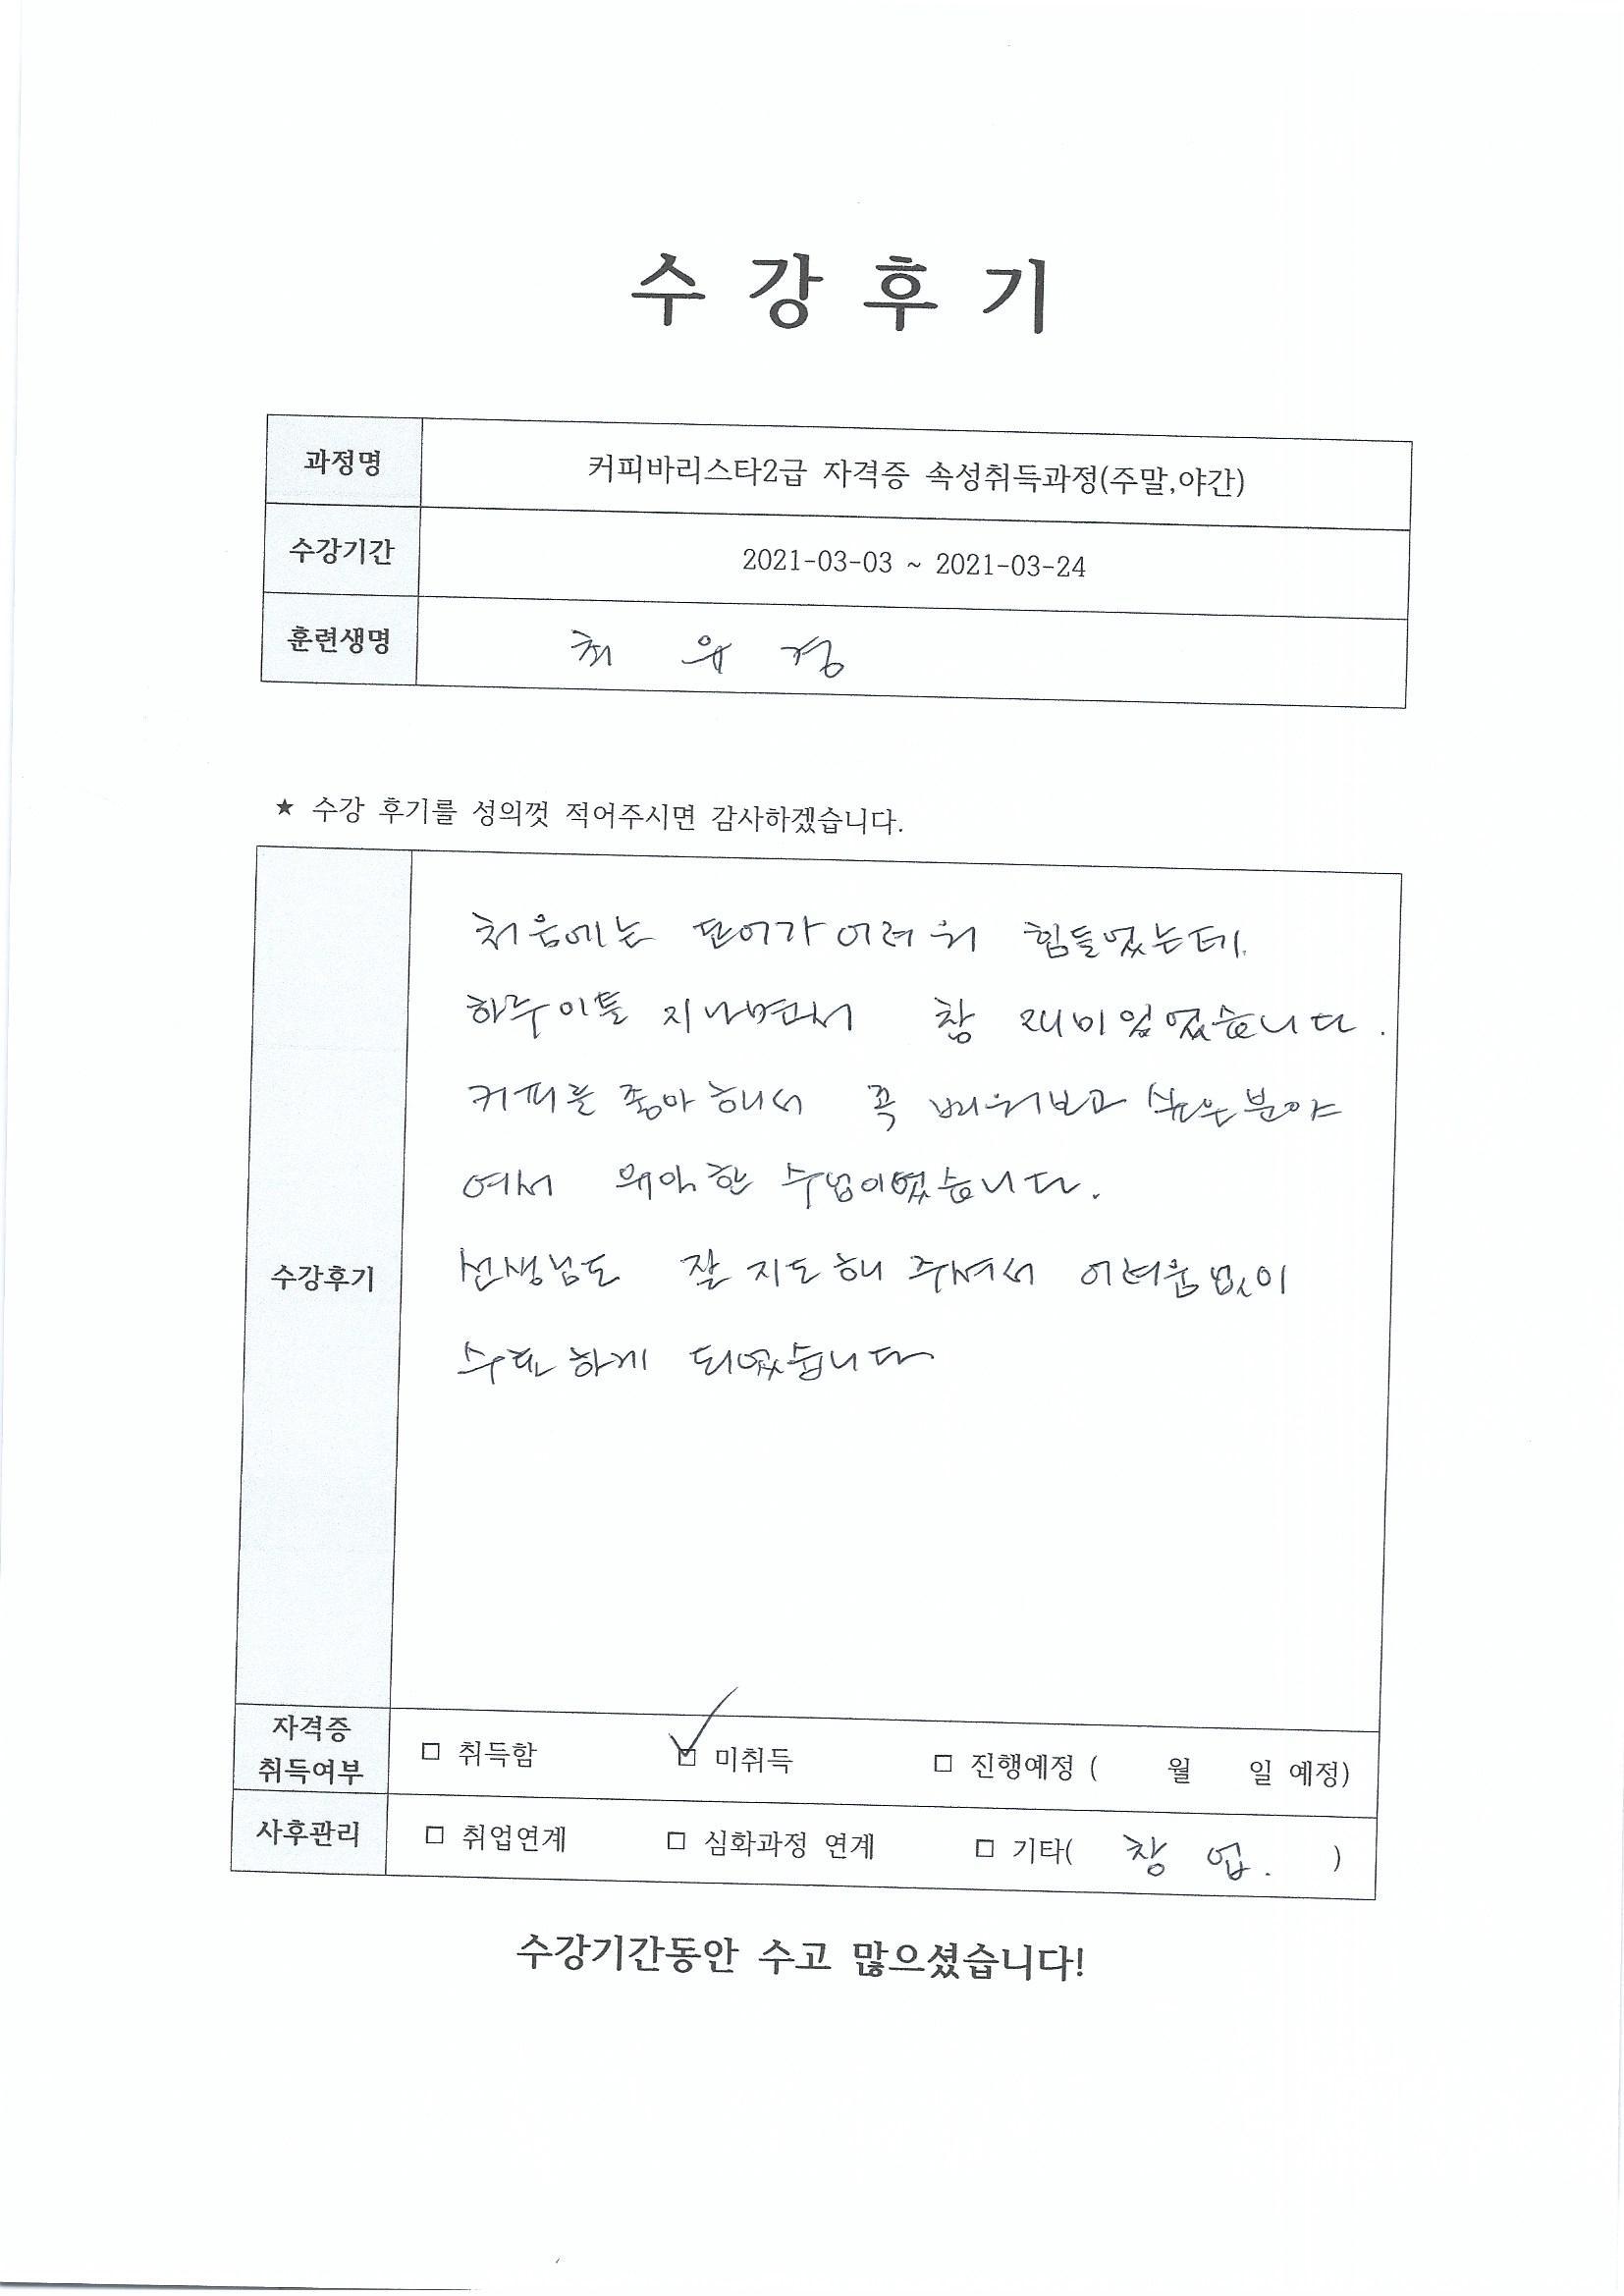 수 강 후 기
과정명 커피바리스타2급 자격증 속성취득과정(주말,야간)
수강기간 2021-03-03 ~ 2021-03-24
훈련생명 최 유 정
★ 수강 후기를 성의껏 적어주시면 감사하겠습니다.
처음에는 단어가 어려워 힘들었는데.
하루이틀 지나면서 참 재미있었습니다.
커피를 좋아해서 꼭 배워보고 싶은 분야
여서 유익한 수업이였습니다.
선생님도 잘 지도해 주셔서 어려움없이
수료하게 되었습니다
수강후기
자격증
취득여부 □ 취득함 □ 미취득 □ 진행예정 ( 월 일 예정)
사후관리 □ 취업연계 □ 심화과정 연계 □ 기타( 창 업. )
수강기간동안 수고 많으셨습니다!